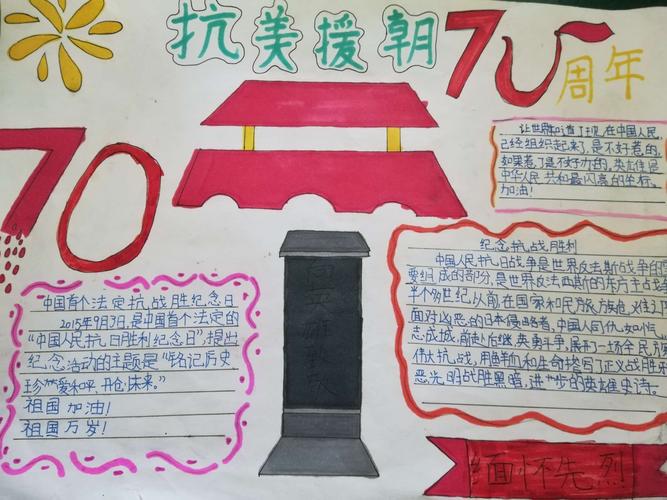 抗美援朝70周年
70
让世界知道了现在中国人民
已经组织起来了,是不好惹的,
如果惹了是不好办的,英雄是
中华人民共和最闪亮的坐标。
加油!
向英雄致敬
中国首个法定抗战胜纪念日
2015年9月3日,是中国首个法定的
“中国人民抗日胜利纪念日”,提出
纪念活动的主题是“铭记历史
珍爱和平 开创未来。”
祖国加油!
祖国万岁!
纪念抗战胜利
中国人民抗日战争是世界反法斯战争的
要组成的部分,是世界反法西斯的东方主战
半个多世纪以前,在国家和民族
面对凶恶的日本侵略者,中国人同仇
志成城,前赴后继英勇斗争,展开了一场全民
伟大抗战,用鲜血和生命撰写了正义战胜
恶光明战胜黑暗,进步的英雄史诗。
缅怀先烈